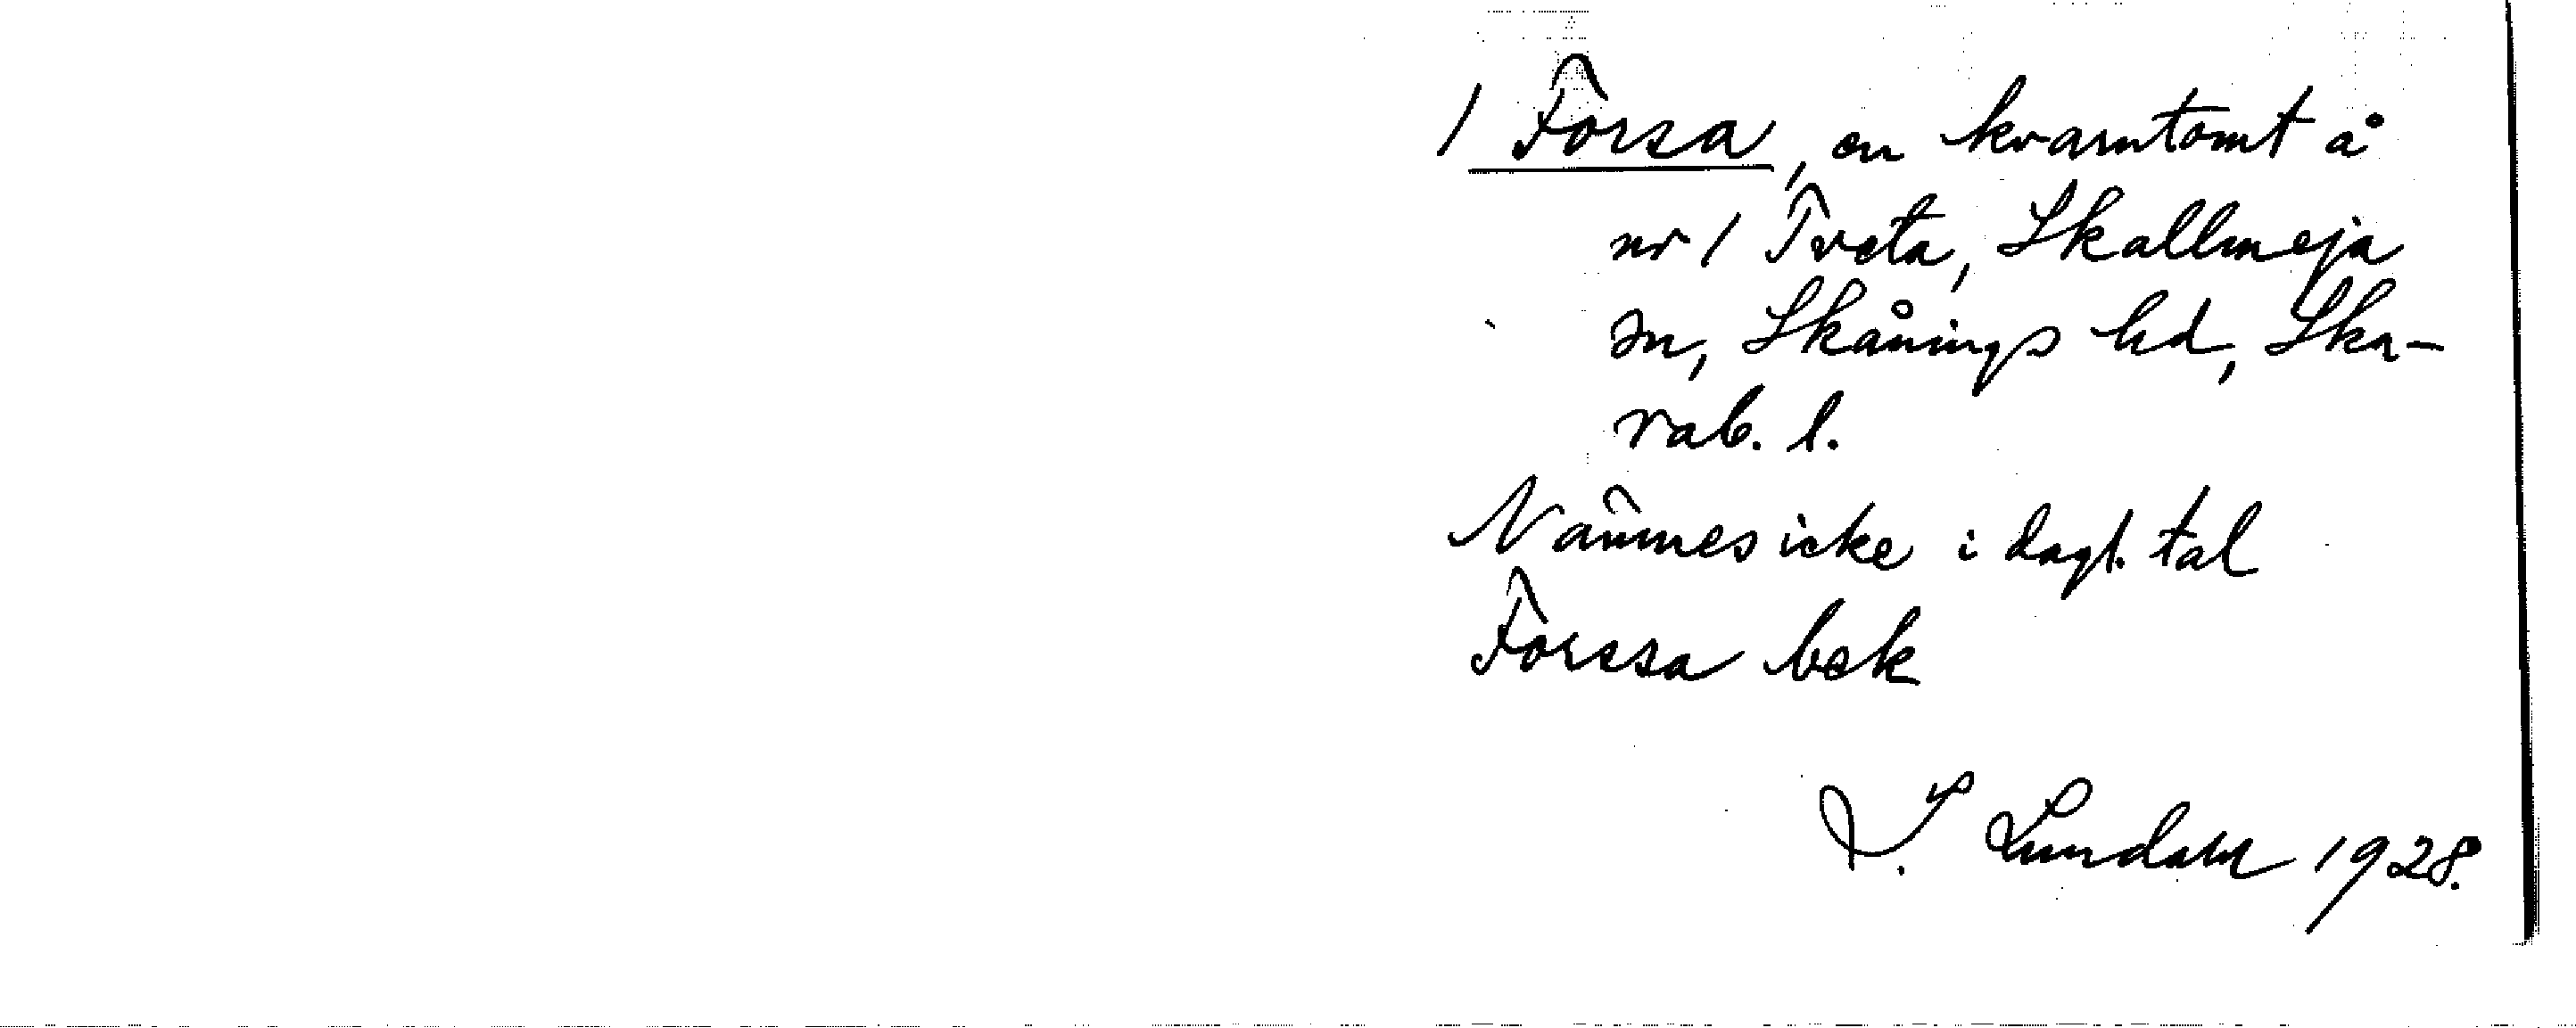 1 Forsa, en kvarntomt å
nr 1 Tveta, Skallmeja
sn, Skånings hd, Ska-
rab. l.
Nämnes icke i dagl. tal
Forssa bek
S. Lundahl 1928.